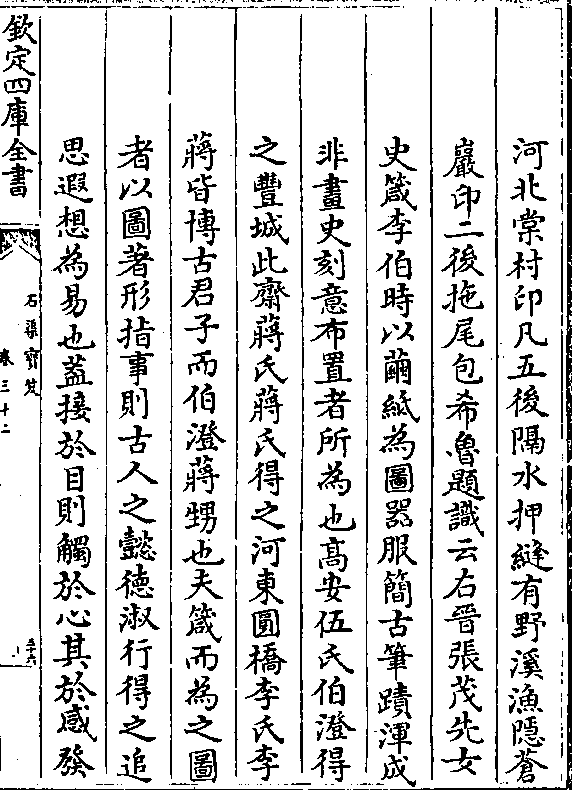 河北棠村印凡五後隔水押縫有野溪漁隱蒼
巖印二後拖尾包希魯題識云右晉張茂先女
史箴李伯時以繭紙為圖器服簡古筆蹟渾成
非畫史刻意布置者所為也髙安伍氏伯澄得
之豐城此齋蔣氏蔣氏得之河東圓橋李氏李
蔣皆博古君子而伯澄蔣甥也夫箴而為之圖
者以圖著形指事則古人之懿德淑行得之追
思遐想為易也葢接於目則觸於心其於感發
欽定四庫全書
石渠寶笈
卷三十二
三十六